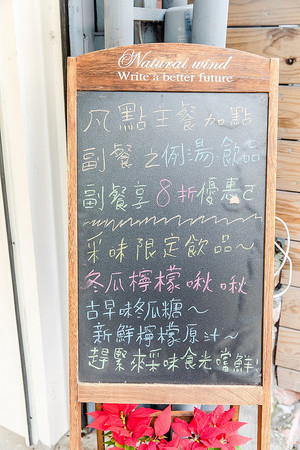 Natural wind
Write a better future
凡點主餐加點
副餐之例湯飲品
副餐享8折優惠
采味限定飲品~
冬瓜檸檬啾啾
古早味冬瓜糖~
新鮮檸檬原汁~
趕緊來采味食光嚐鮮!